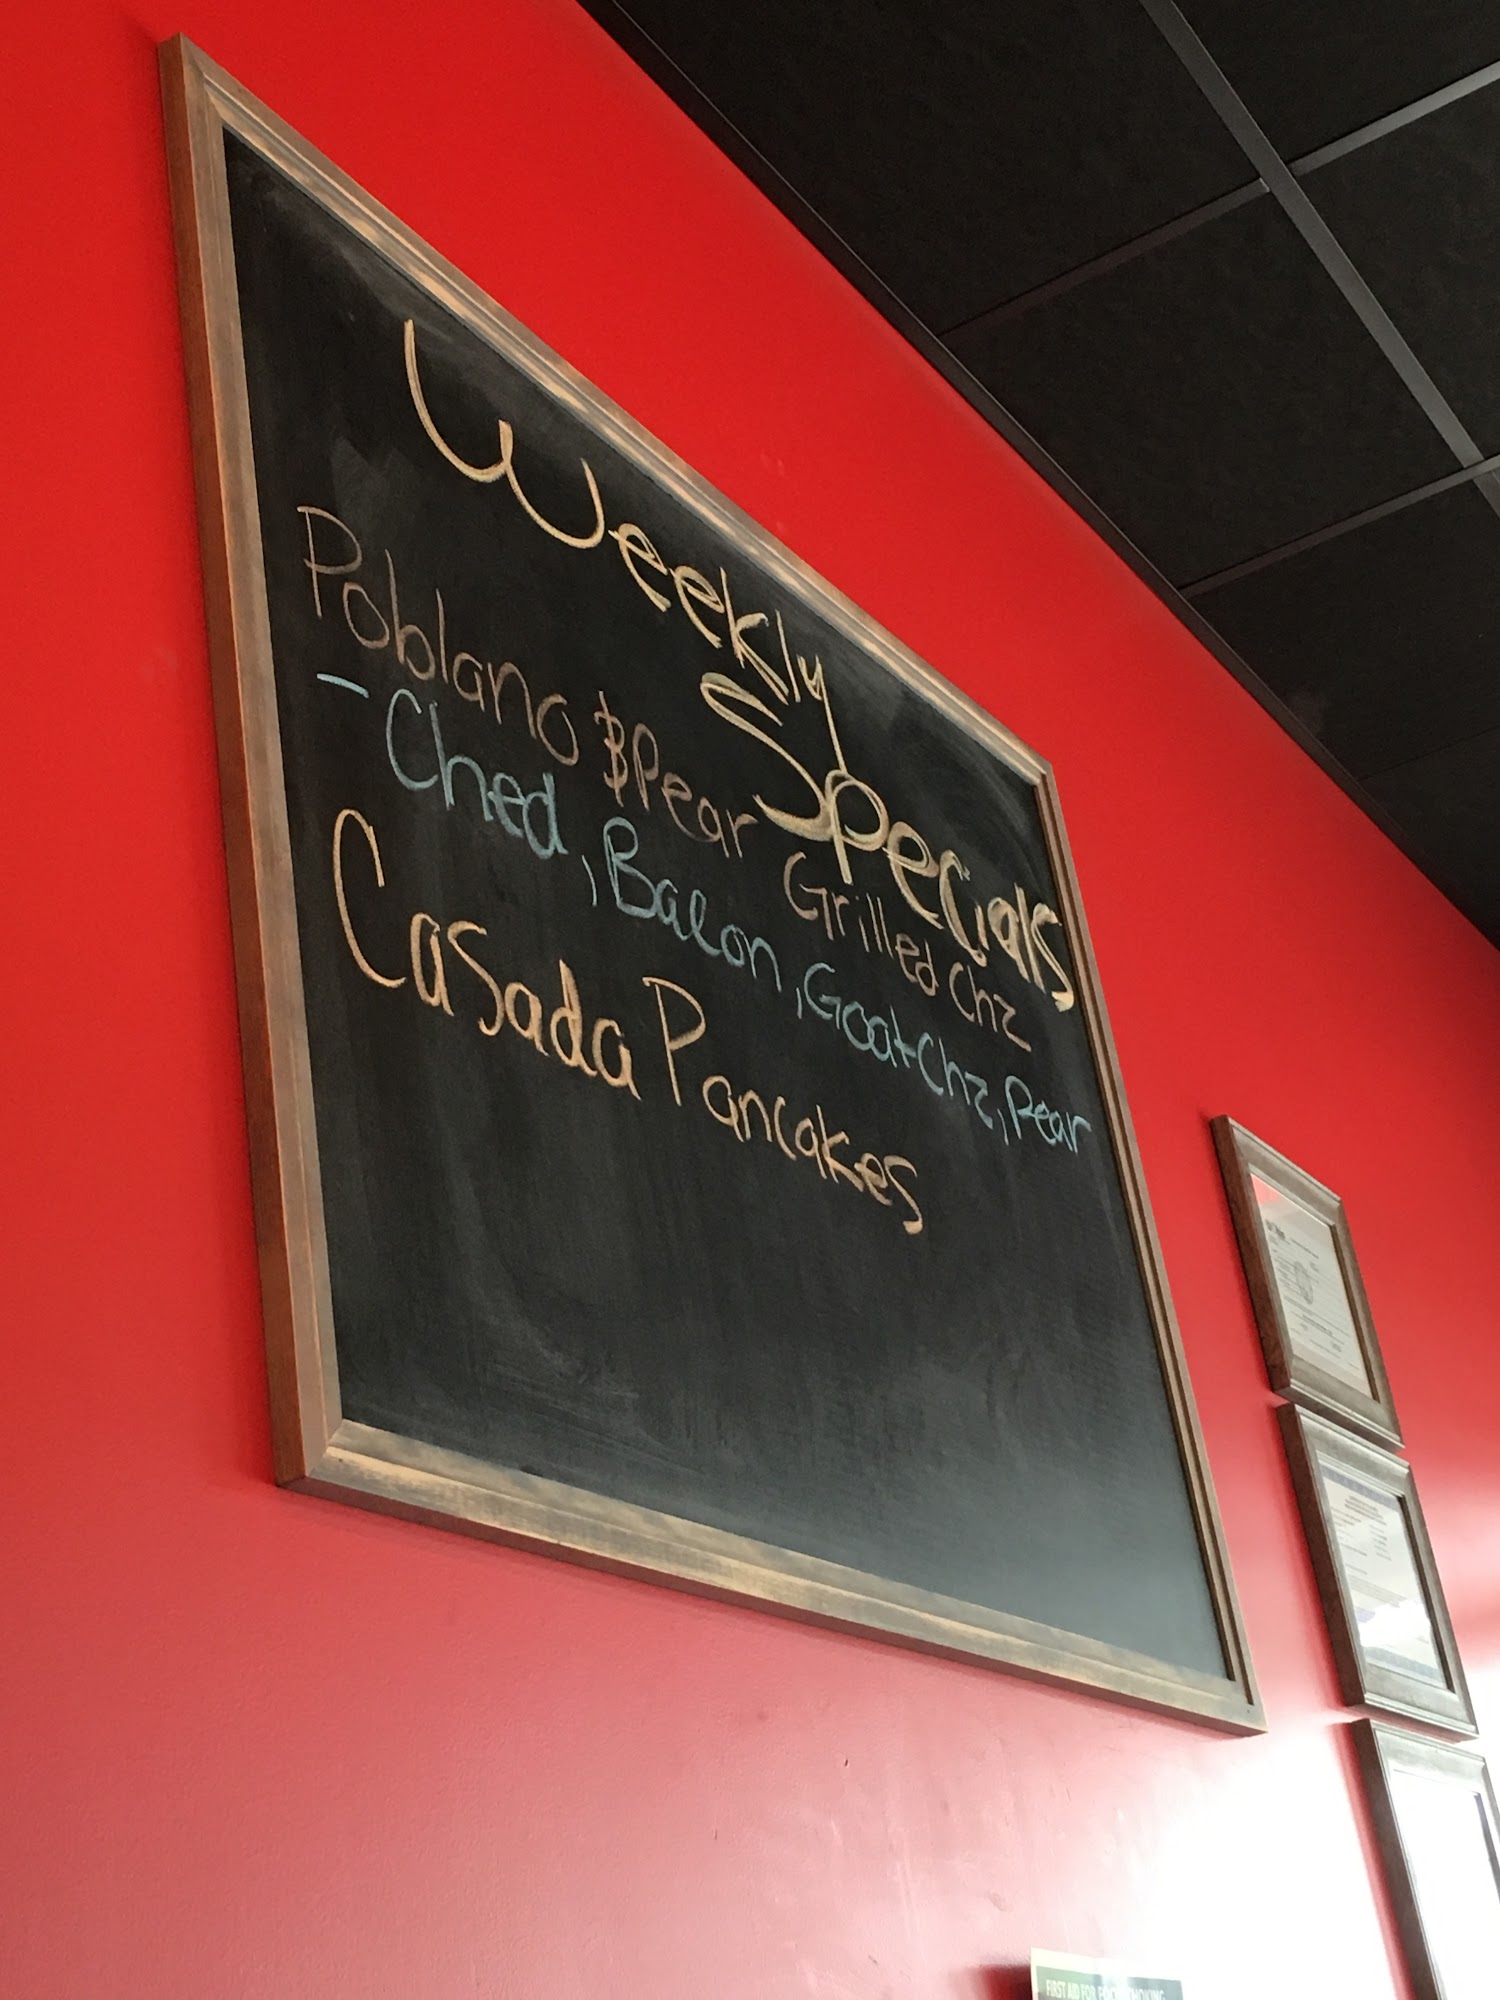 Weekly
Specials
Poblano & Pear Grilled Chz
- Ched, Bacon, Goat Chz, Pear
Casada Pancakes
FIRST AID FOR